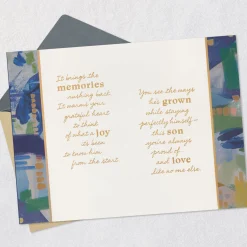 It brings the
memories
rushing back.
It warms your
grateful heart
to think
of what a joy
it's been
to love him
from the start.
You see the ways
he's grown
while staying
perfectly himself—
this son
you're always
proud of
and love
like no one else.